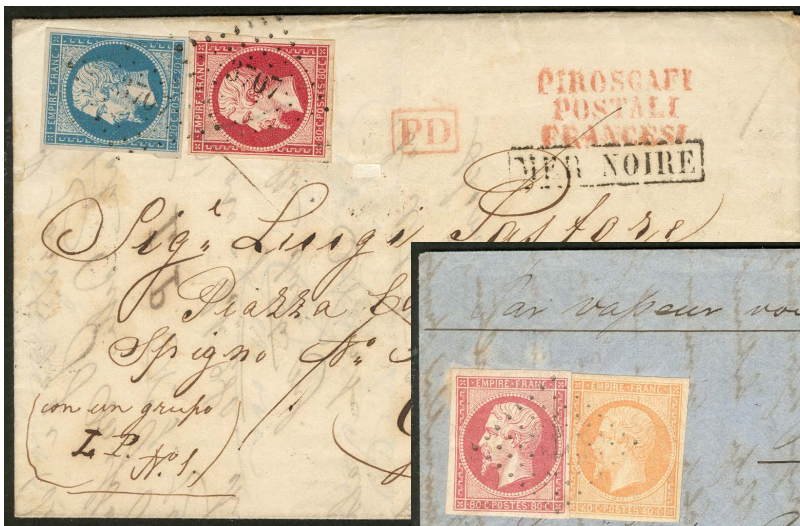 EMPIRE FRANC
20C POSTES 20C
EMPIRE FRANC
80C POSTES 80C
3707
PD
PIROSCAFI
POSTALI
FRANCESI
MER NOIRE
Sigr. Luigi Pastore
Piazza
Spigno No.
con un grupo
L P.
No 1.
Par vapeur
EMPIRE FRANC
80C POSTES 80C
EMPIRE FRANC
40C POSTES 40C